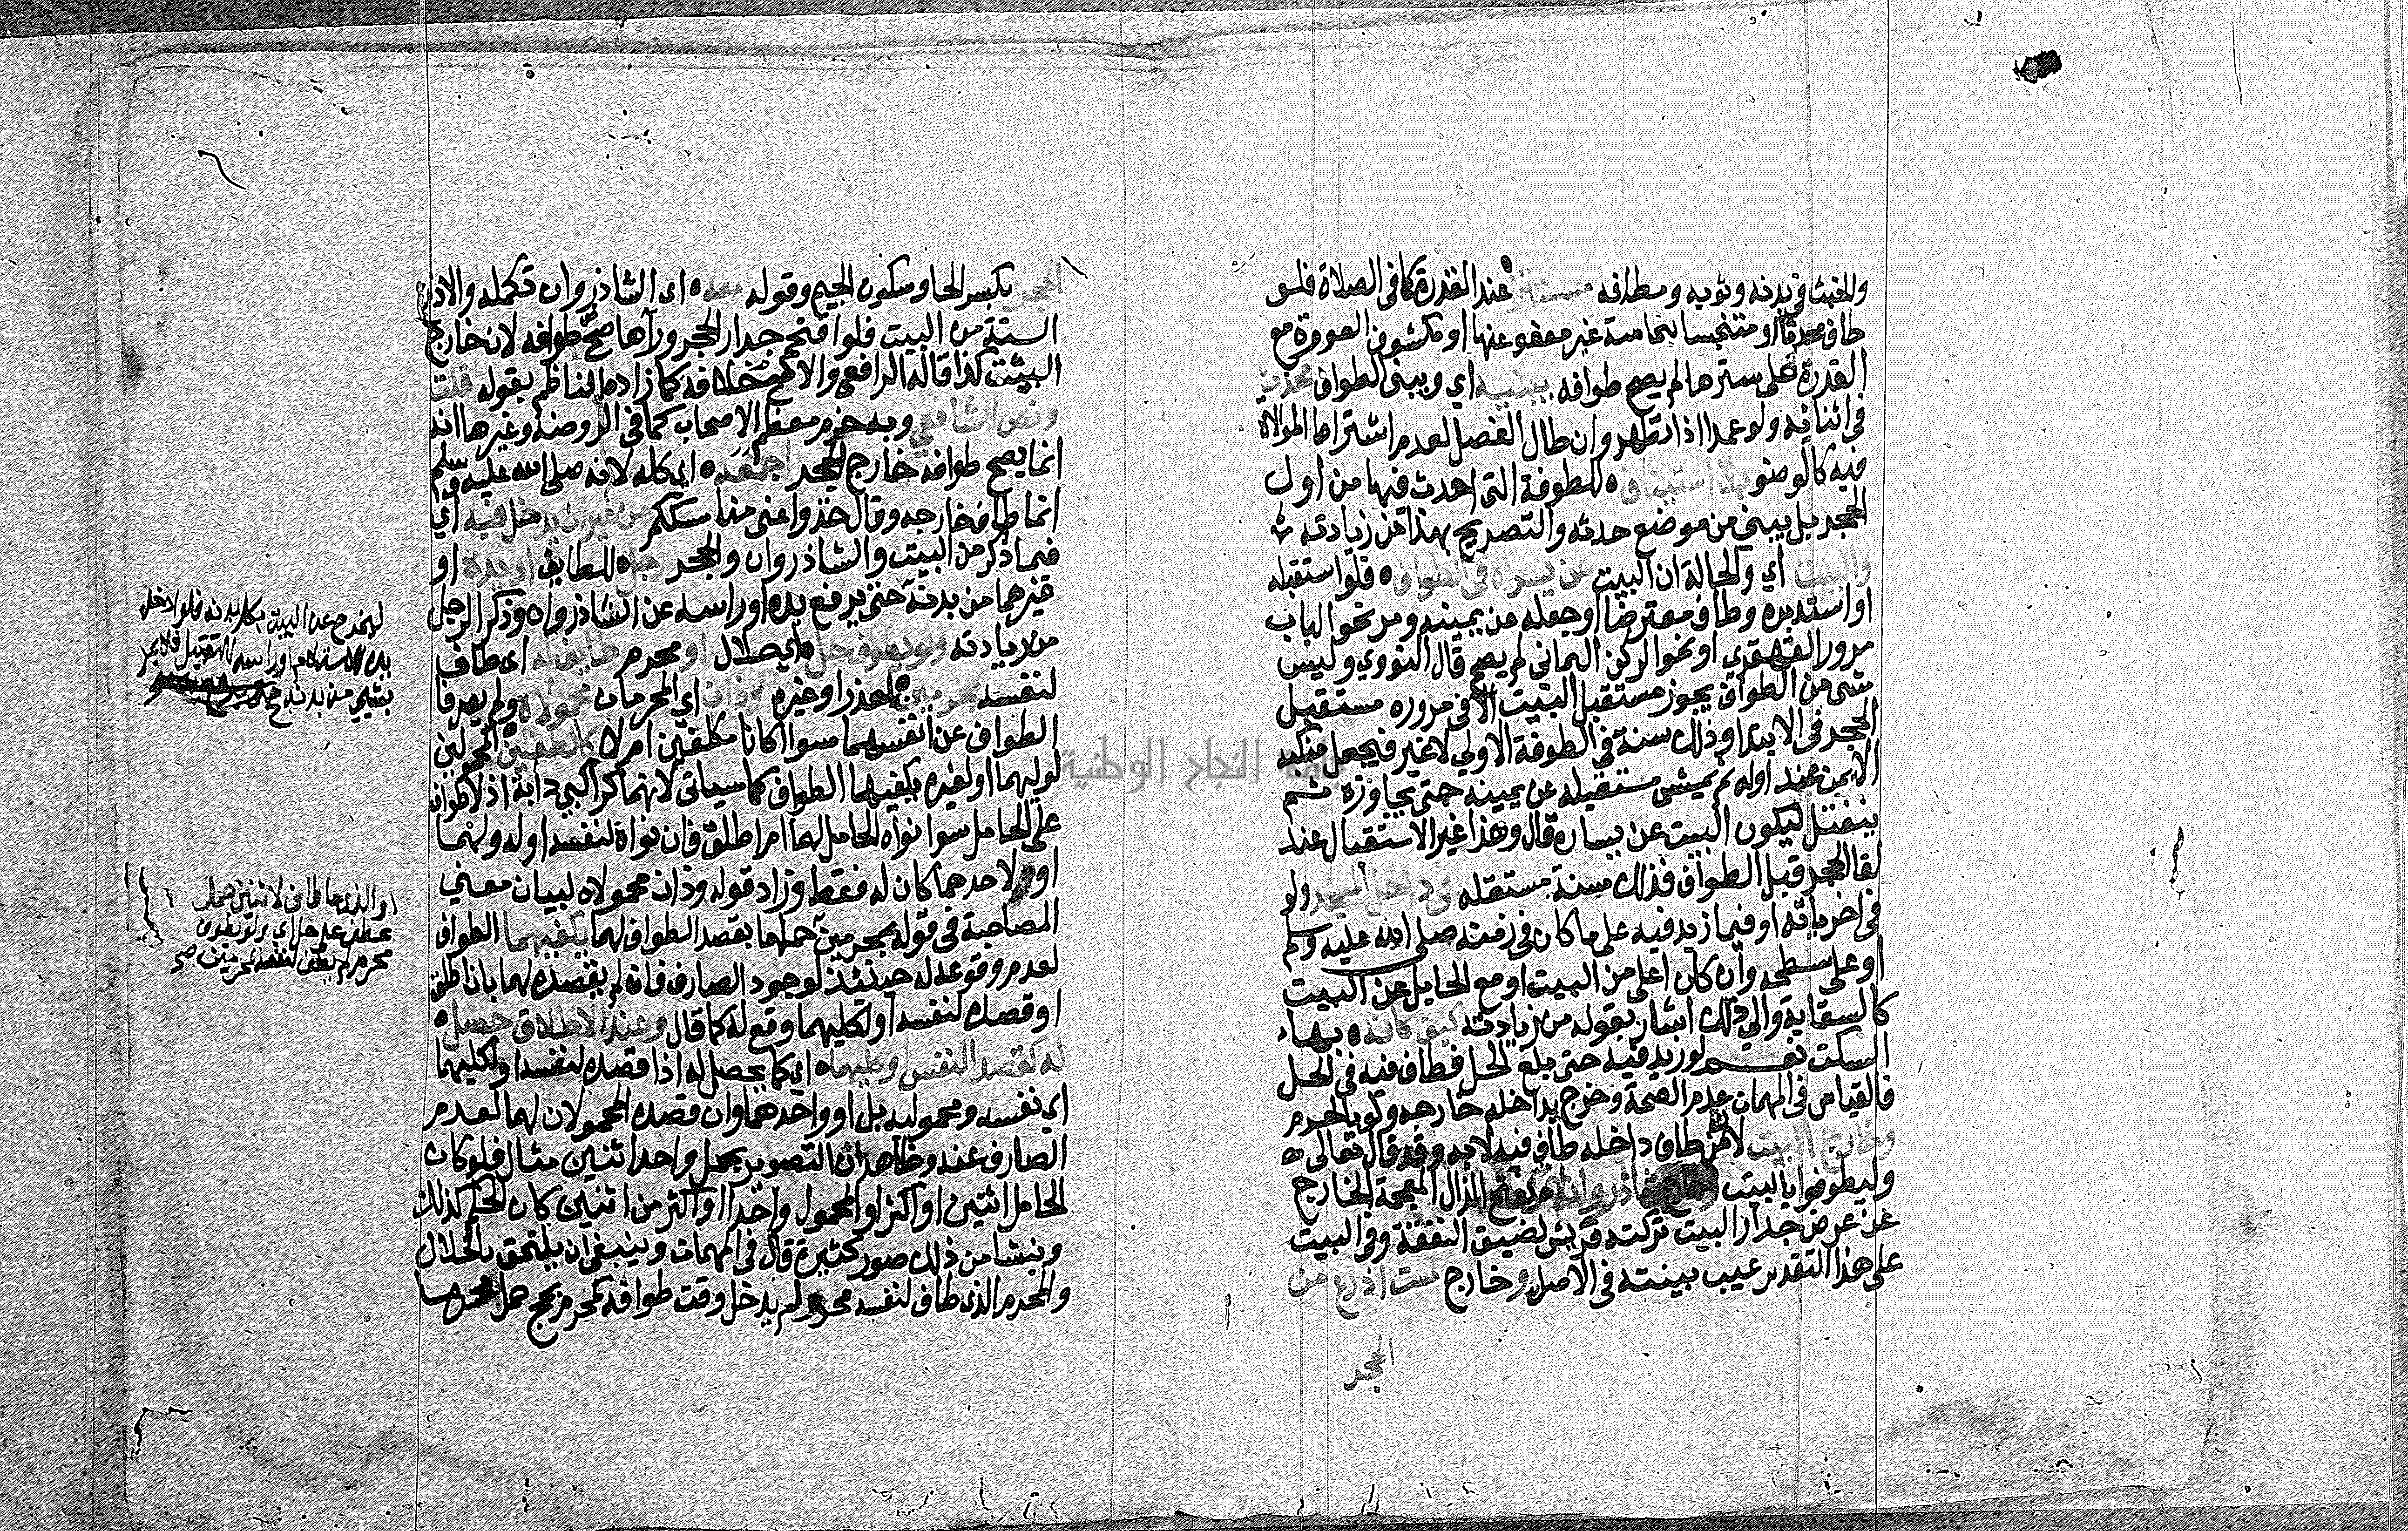 والخبث في بدنه وثوبه ومطافه مستترا عند القدرة كما في الصلاة فلو
طاف محدثا او متنجسا بنجاسة غير معفو عنها او مكشوف العورة مع
القدرة على سترها لم يصح طوافه يبنيه اي ويبنى الطواف محدث
في اثنائه ولو عمدا اذا تطهر وان طال الفصل لعدم اشتراط الموالاة
فيه كالوضو بلا استيناف للطوفة التي احدث فيها من اول
الحجر بل يبنى من موضع حدثه والتصريح بهذا من زيادته
والبيت اي والحالة ان البيت عن يسراه في الطواف فلو استقبله
او استدبره وطاف معترضا او جعله من يمينه ومر نحو الباب
مرور القهقري او نحو الركن اليماني لم يصح قال النووي وليس
شي من الطواف يجوز مستقبل البيت الا في مروره مستقبل
الحجر في الابتدا وذلك سنة في الطوفة الاولي لا غير فيجعل منكبه
الايمن عند اوله ثم يمشى مستقبله عن يمينه حتى يجاوزه ثم
ينفتل ليكون البيت عن يساره قال وهذا غير الاستقبال عند
لقا الحجر قبل الطواف فذلك سنة مستقله في داخل المسجد ولو
في اخرياته او فيما زيد فيه على ما كان في زمنه صلى الله عليه وسلم
او على سطحه وان كان اعلى من البيت او مع الحايل عن البيت
كالسقاية والي ذلك اشار بقوله من زيادته كيف كانه بهاء
السكت نعم لو زيد فيه حتى بلغ الحل فطاف فيه في الحل
فالقياس في المهمات عدم الصحة وخرج بداخله خارجه ولو بالحرم
وخارج البيت لا من طاف داخله طاف فيه لا به وقد قال تعالى
وليطوفوا بالبيت بفتح الذال المعجمة الخارج
عن عرض جدار البيت تركته قريش لضيق النفقة وهو البيت
على هذا التقدير عيب بينته في الاصل وخارج ست اذرع من
الحجر
الحجر بكسر الحا وسكون الجيم وقوله بعده اي الشاذروان تكمله والاذرع
الستة من البيت فلو افتتح جدار الحجر ورآها صح طوافه لانه خارج
البيت كذا قاله الرافعي والاصح خلافه كما زاده الناظم بقوله قلت
ونص الشافعي وبه جزم معظم الاصحاب كما في الروضة وغيرها انه
انما يصح طوافه خارج الحجر اجمعه اي كله لانه صلى الله عليه وسلم
انما طاف خارجه وقال خذوا عني مناسككم من غير ان يدخل فيه اي
فيما ذكر من البيت والشاذروان والحجر رجل الطايف او يده او
غيرهما من بدنه حتى يرفع يده او راسه عن الشاذروان وذكر الرجل
من زيادته ولو يطوف حل اي حلال او محرم طايف له اي طاف
لنفسه بمحرمين لعذر او غيره وذان اي المحرمان محمولاه ولم يصرفا
الطواف عن انفسهما سوا اكانا مكلفين ام لا كالطفلين المحمولين
لوليهما او لغيره يكفيهما الطواف كما سياتى لانهما كراكبي دابة اذ لا طواف
على الحامل سوا نواه الحامل لهما ام اطلق فان نواه لنفسه او له ولهما
او ولاحدهما كان له فقط وزاد قوله وذان محمولاه لبيان معني
المصاحبة في قوله بمحرمين حملهما بقصد الطواف لهما يكفيهما الطواف
لعدم وقوعه له حينئذ لوجود الصارف فان لم يقصده لهما بان اطلق
او قصده لنفسه او لكليهما وقع له كما قال وعند الاطلاق حصل
له كقصد النفس او كليهما اي كما يحصل له اذا قصده لنفسه او لكليهما
اي نفسه ومحموليه بل او واحدهما وان قصده المحمولان لهما لعدم
الصارف عنه وظاهر ان التصوير بحمل واحد اثنين مثال فلو كان
الحامل اثنين او اكثر او المحمول واحدا او اكثر من اثنين كان الحكم كذلك
وينشا من ذلك صور كثيرة قال في المهمات وينبغي ان يلتحق بالحلال
والمحرم الذي طاف لنفسه محرم لم يدخل وقت طوافه كمحرم بحج حمل محرما
ليخرج عن البيت بكل بدنه فلو ادخل
يده للاستلام او راسه للتقبيل فلا يمر
بشيي من بدنه
او الذي ما طاف لاثنين حمل
عطف على حل اي ولو يطوف
محرم لم يطف لنفسه بمحرمين صح
النجاح الوطنية